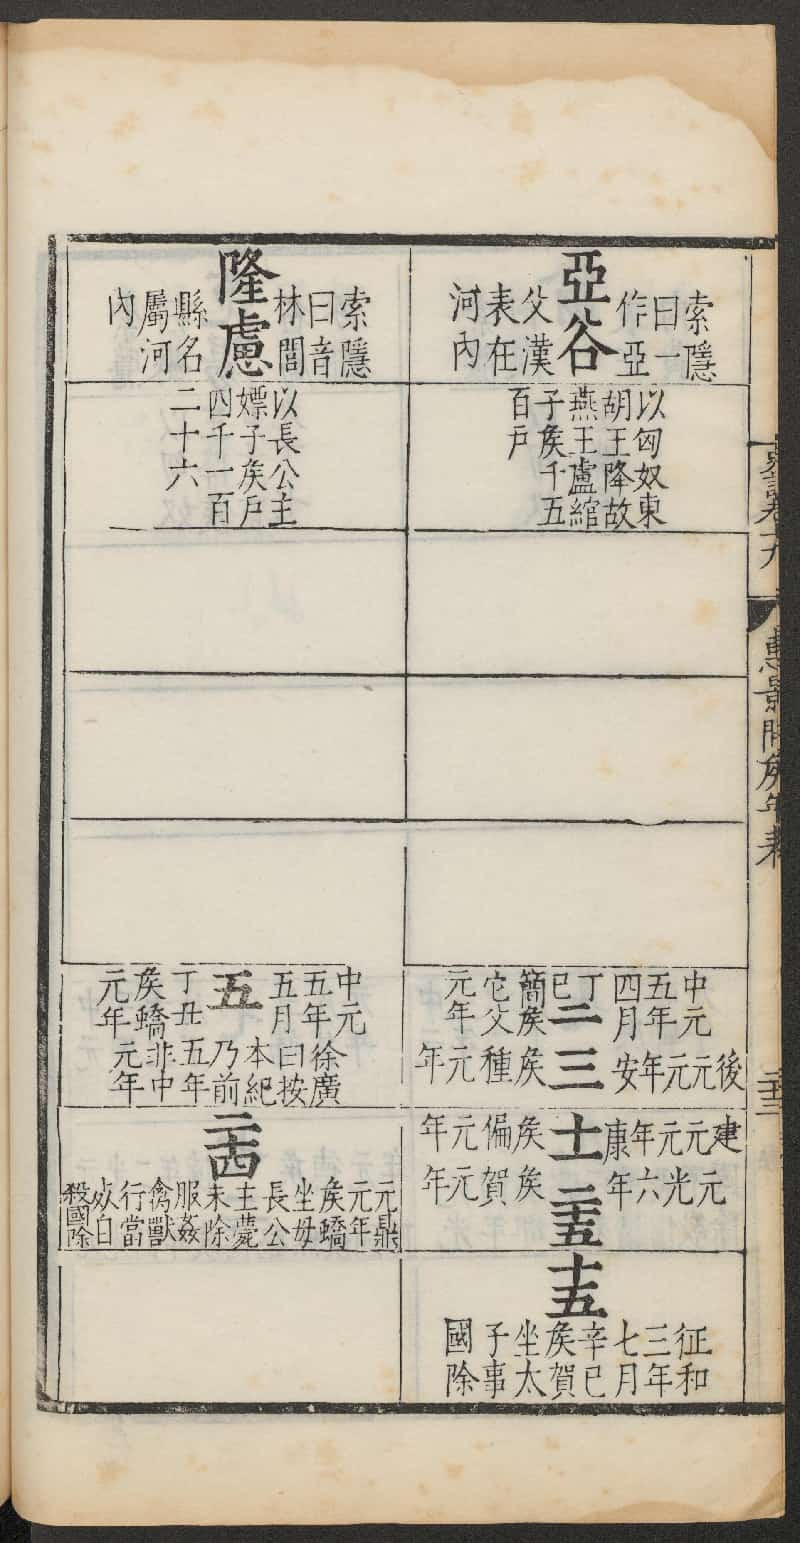 史記卷十九
惠景間矦年表
亞谷
索隱
曰一
作亞
父漢
表在
河內
以匈奴東
胡王降故
燕王盧綰
子矦千五
百戶
二
中元
五年
四月
丁巳
簡矦
它父
元年
三
後元元年安
矦種元年
十一
建元元年康
矦偏元年
二十五
元光六年
矦賀元年
十五
征和
三年
七月
辛巳
矦賀
坐太
子事
國除
隆慮
索隱
曰音
林閭
縣名
屬河
內
以長公主
嫖子矦戶
四千一百
二十六
五
中元
五年
五月
丁丑
矦蟜
元年
徐廣
曰按
本紀
乃前
五年
非中
元年
二十四
元鼎
元年
矦蟜
坐母
長公
主薨
未除
服姦
禽獸
行當
死自
殺國除